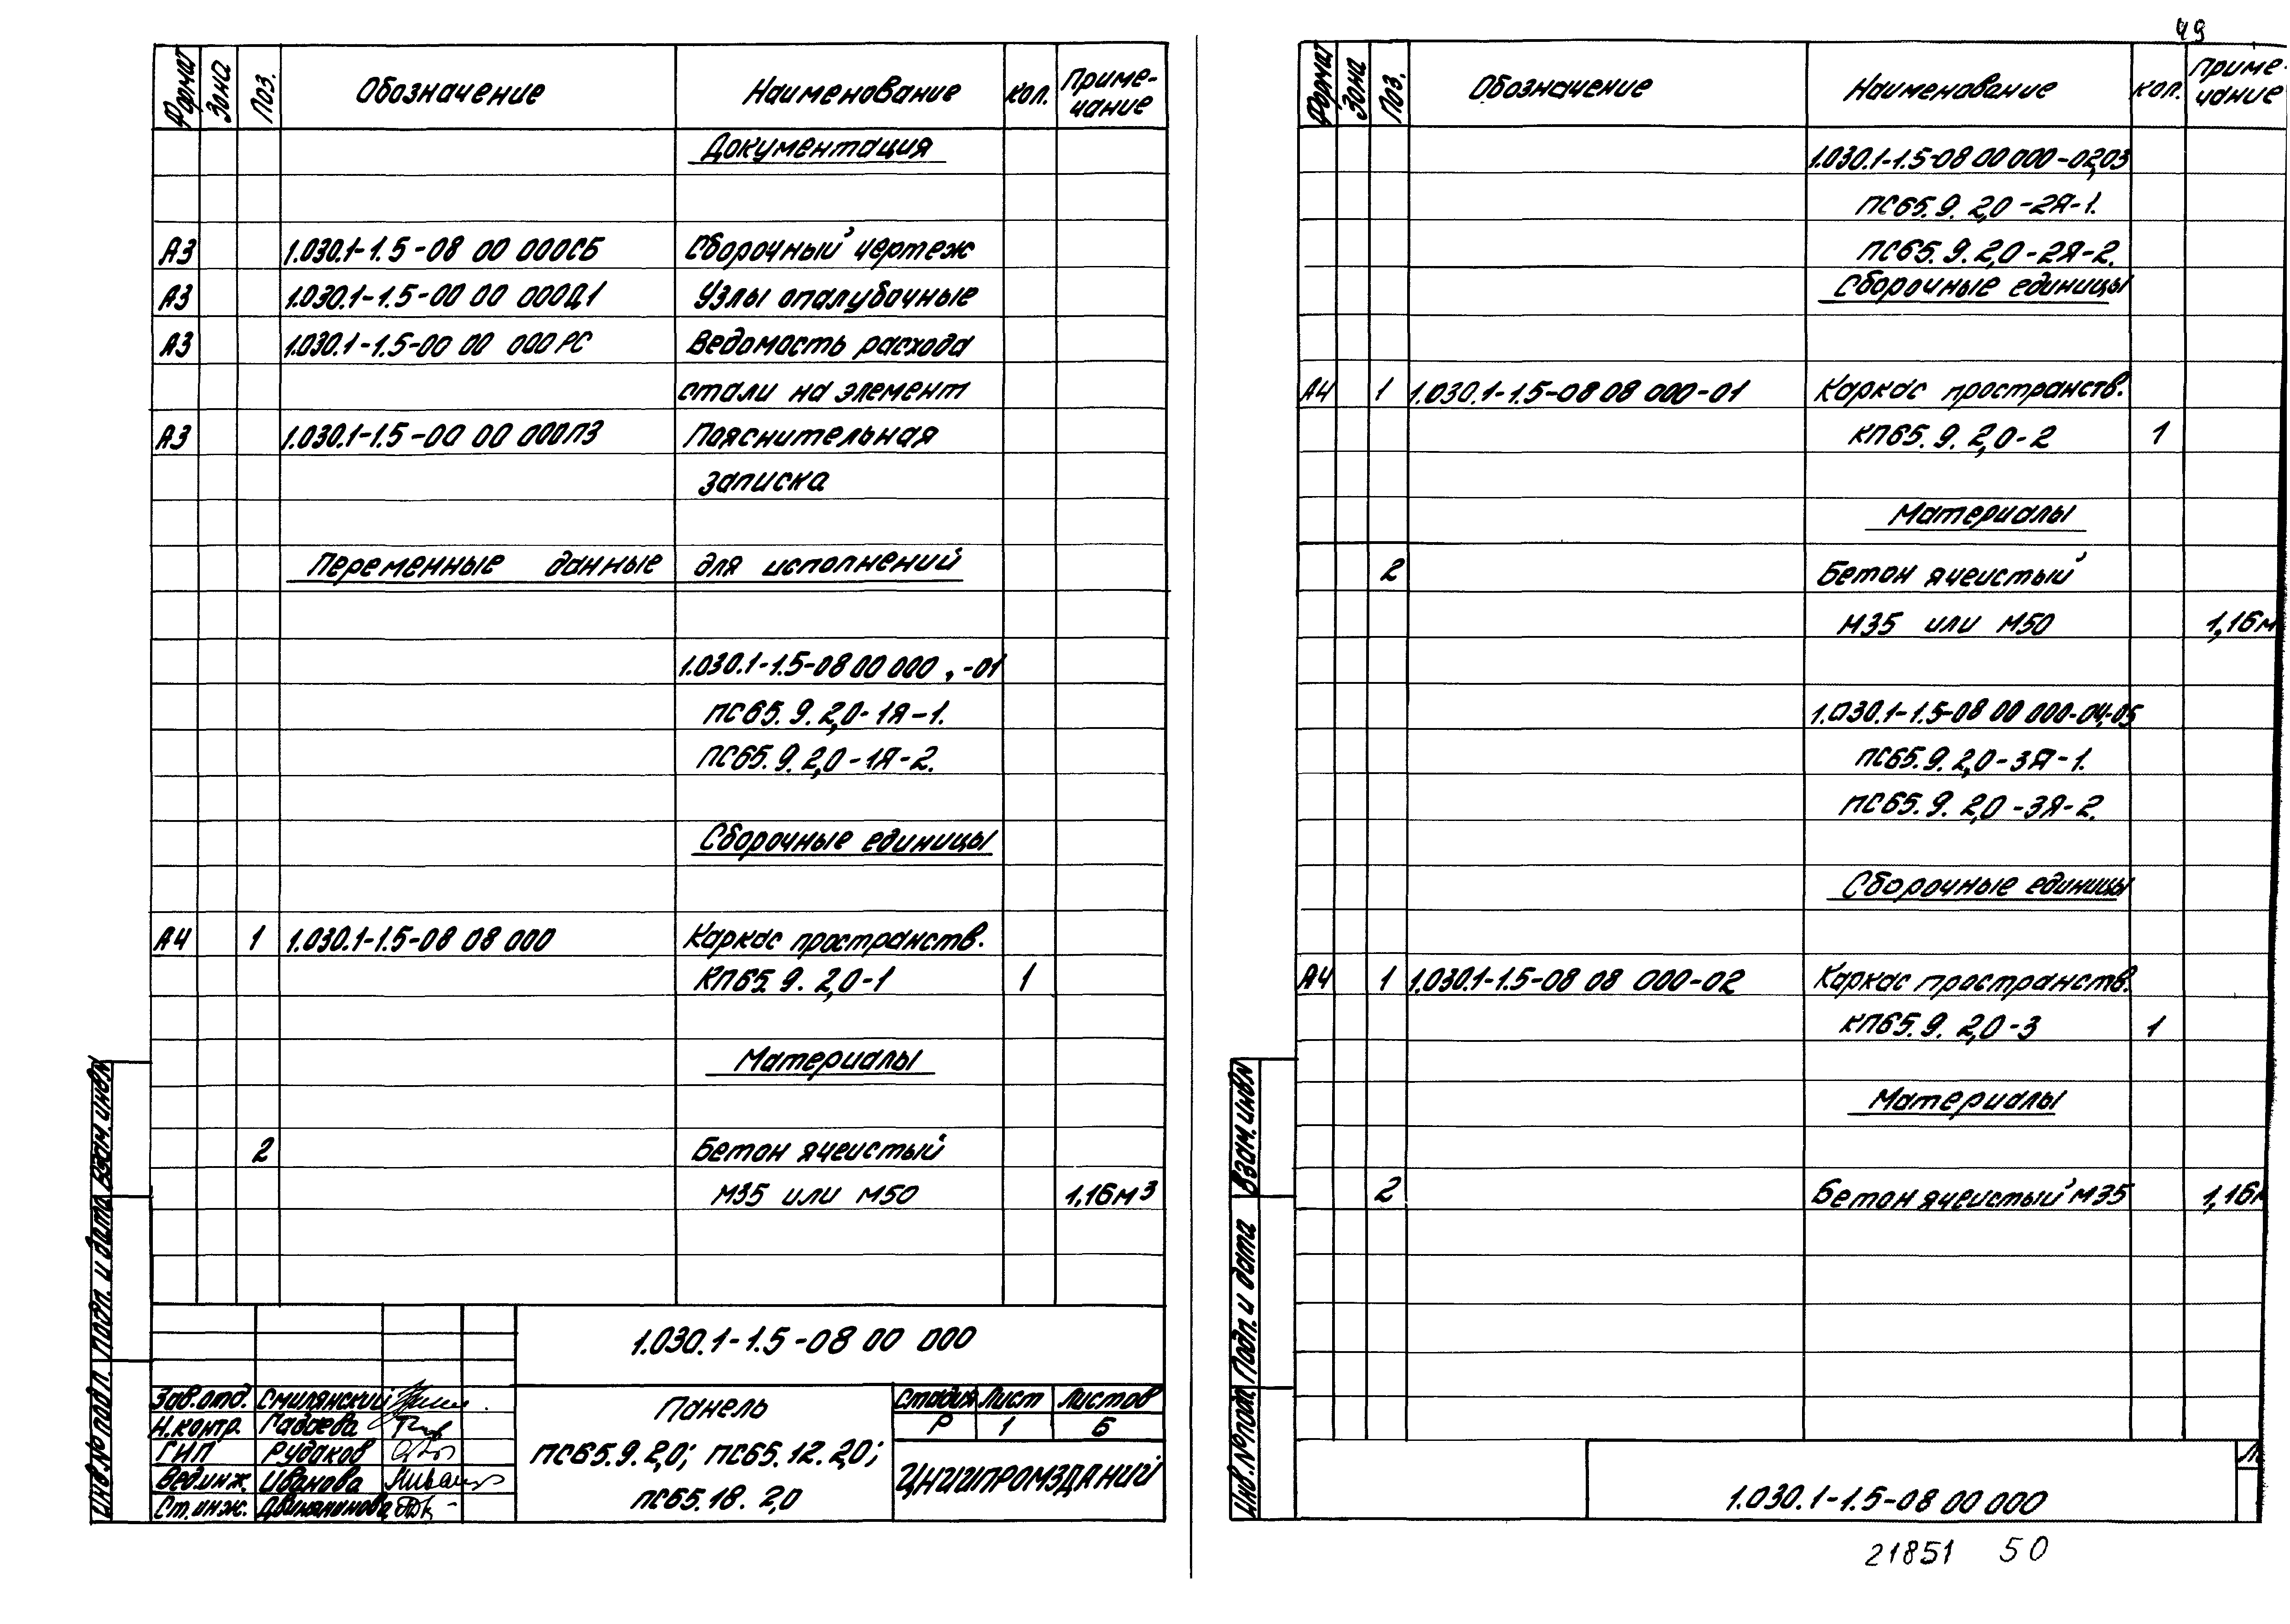 49
Формат Зона Поз. Обозначение Наименование Кол. Приме-
чание
Документация
А3 1.030.1-1.5-08 00 000СБ Сборочный чертеж
А3 1.030.1-1.5-00 00 000Д1 Узлы опалубочные
А3 1.030.1-1.5-00 00 000РС Ведомость расхода
стали на элемент
А3 1.030.1-1.5-00 00 000ПЗ Пояснительная
записка
Переменные данные для исполнений
1.030.1-1.5-08 00 000, -01
ПС65.9.2,0-1Я-1.
ПС65.9.2,0-1Я-2.
Сборочные единицы
А4 1 1.030.1-1.5-08 08 000 Каркас пространств.
КП65.9.2,0-1 1
Материалы
2 Бетон ячеистый
М35 или М50 1,16м³
1.030.1-1.5-08 00 000
Зав.отд. Смилянский
Н.контр.
ГИП Рудаков
Вед.инж. Иванова
Ст.инж.
Панель
ПС65.9.2,0; ПС65.12.2,0;
ПС65.18.2,0
Стадия Лист Листов
Р 1 6
ЦНИИПРОМЗДАНИЙ
Инв.№ подл. Подп. и дата Взам.инв.№
Формат Зона Поз. Обозначение Наименование Кол. Приме-
чание
1.030.1-1.5-08 00 000-02,03
ПС65.9.2,0-2Я-1.
ПС65.9.2,0-2Я-2.
Сборочные единицы
А4 1 1.030.1-1.5-08 08 000-01 Каркас пространств.
КП65.9.2,0-2 1
Материалы
2 Бетон ячеистый
М35 или М50 1,16м
1.030.1-1.5-08 00 000-04,-05
ПС65.9.2,0-3Я-1.
ПС65.9.2,0-3Я-2.
Сборочные единицы
А4 1 1.030.1-1.5-08 08 000-02 Каркас пространств.
КП65.9.2,0-3 1
Материалы
2 Бетон ячеистый М35 1,16м
1.030.1-1.5-08 00 000
Инв.№ подл. Подп. и дата Взам.инв№
21851 50